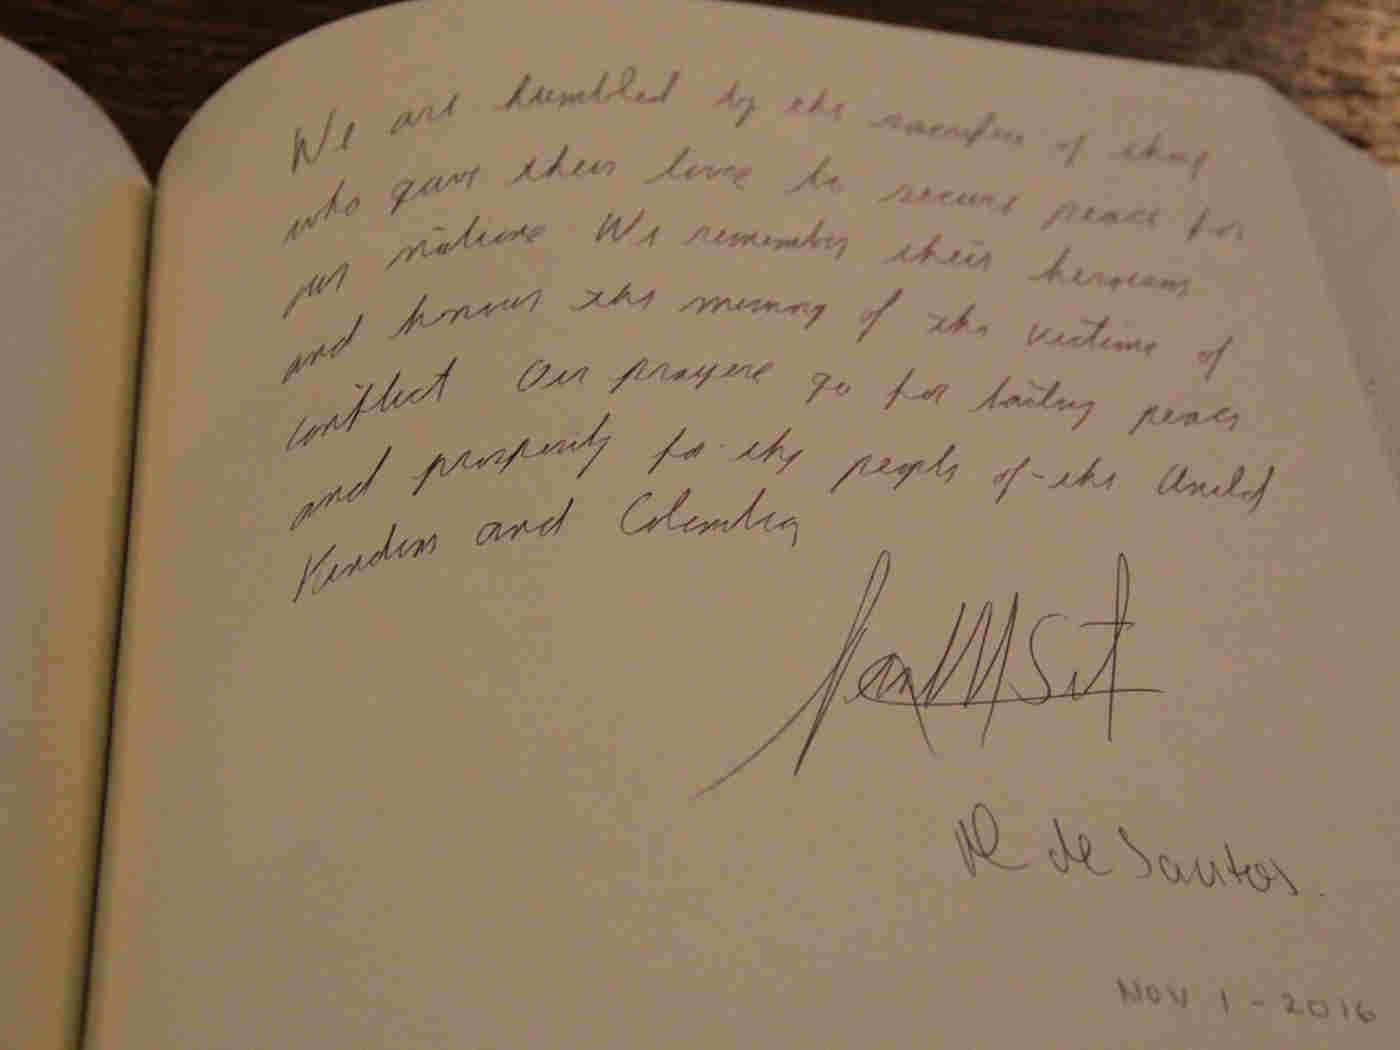 We are humbled by the sacrifice of those
who gave their lives to secure peace for
our nations. We remember their heroism
and honour the memory of the victims of
conflict Our prayers go for lasting peace
and prosperity for the people of the United
Kindom and Colombia
de Santos.
NOV 1 - 2016